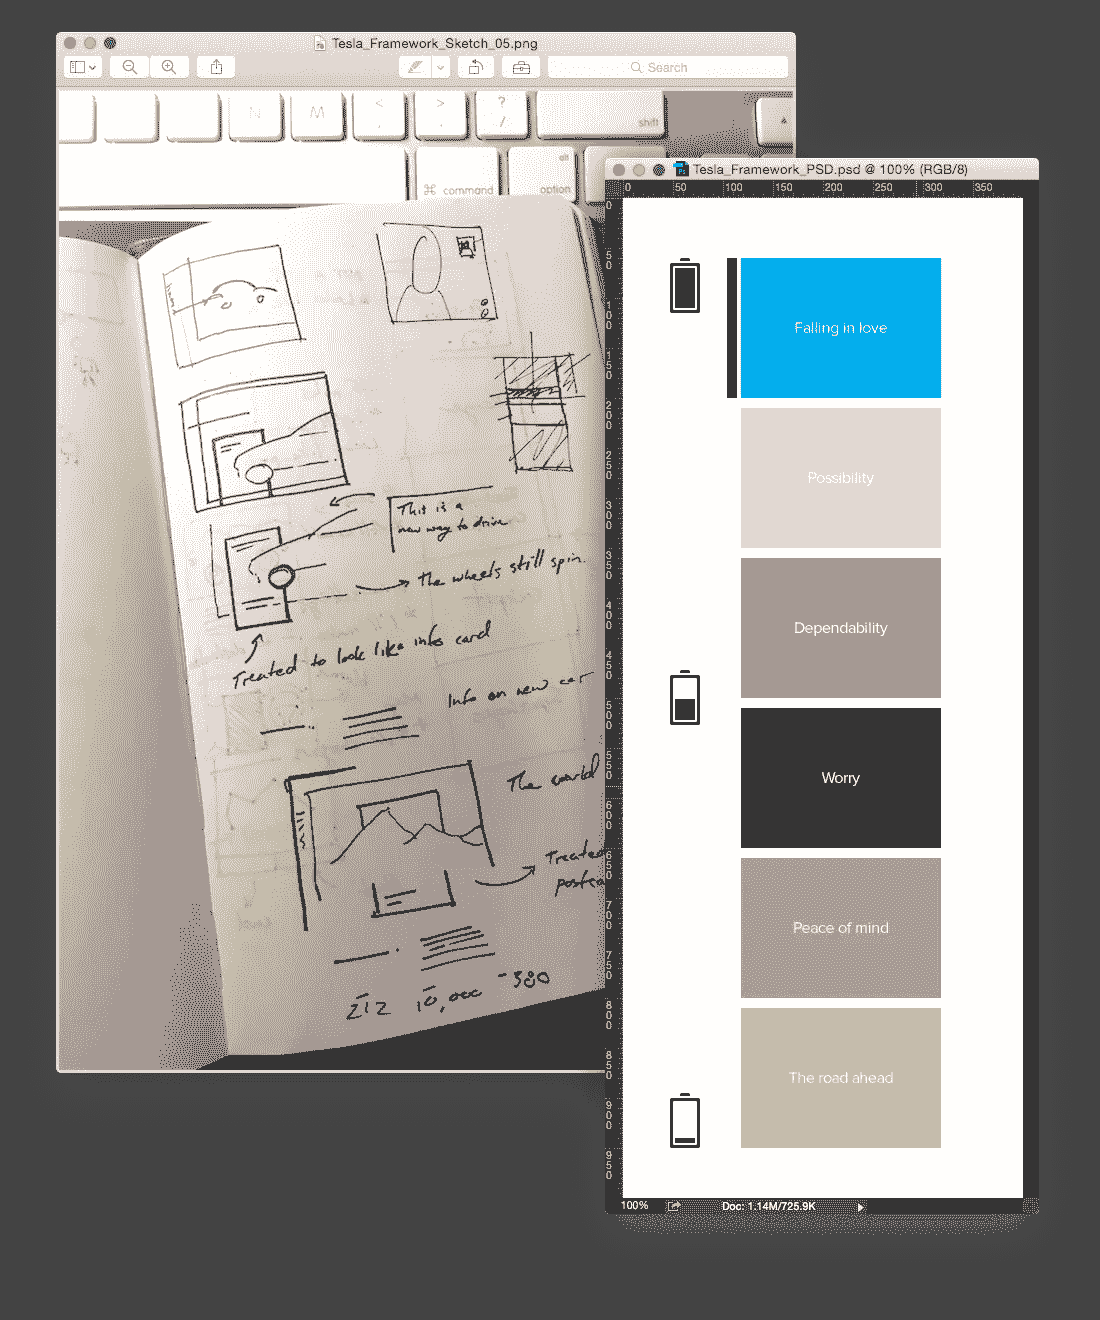 Tesla_Framework_Sketch_05.png
Search
N
M
<
,
>
.
?
/
shift
⌘ command
alt
option
This is a
new way to drive
The wheels still spin.
Treated to look like info card
Info on new car
The world
Treated
212 10,000 -380
Tesla_Framework_PSD.psd @ 100% (RGB/8)
0 50 100 150 200 250 300 350
0
50
100
150
200
250
300
350
400
450
500
550
600
650
700
750
800
850
900
950
Falling in love
Possibility
Dependability
Worry
Peace of mind
The road ahead
100%
Doc: 1.14M/725.9K